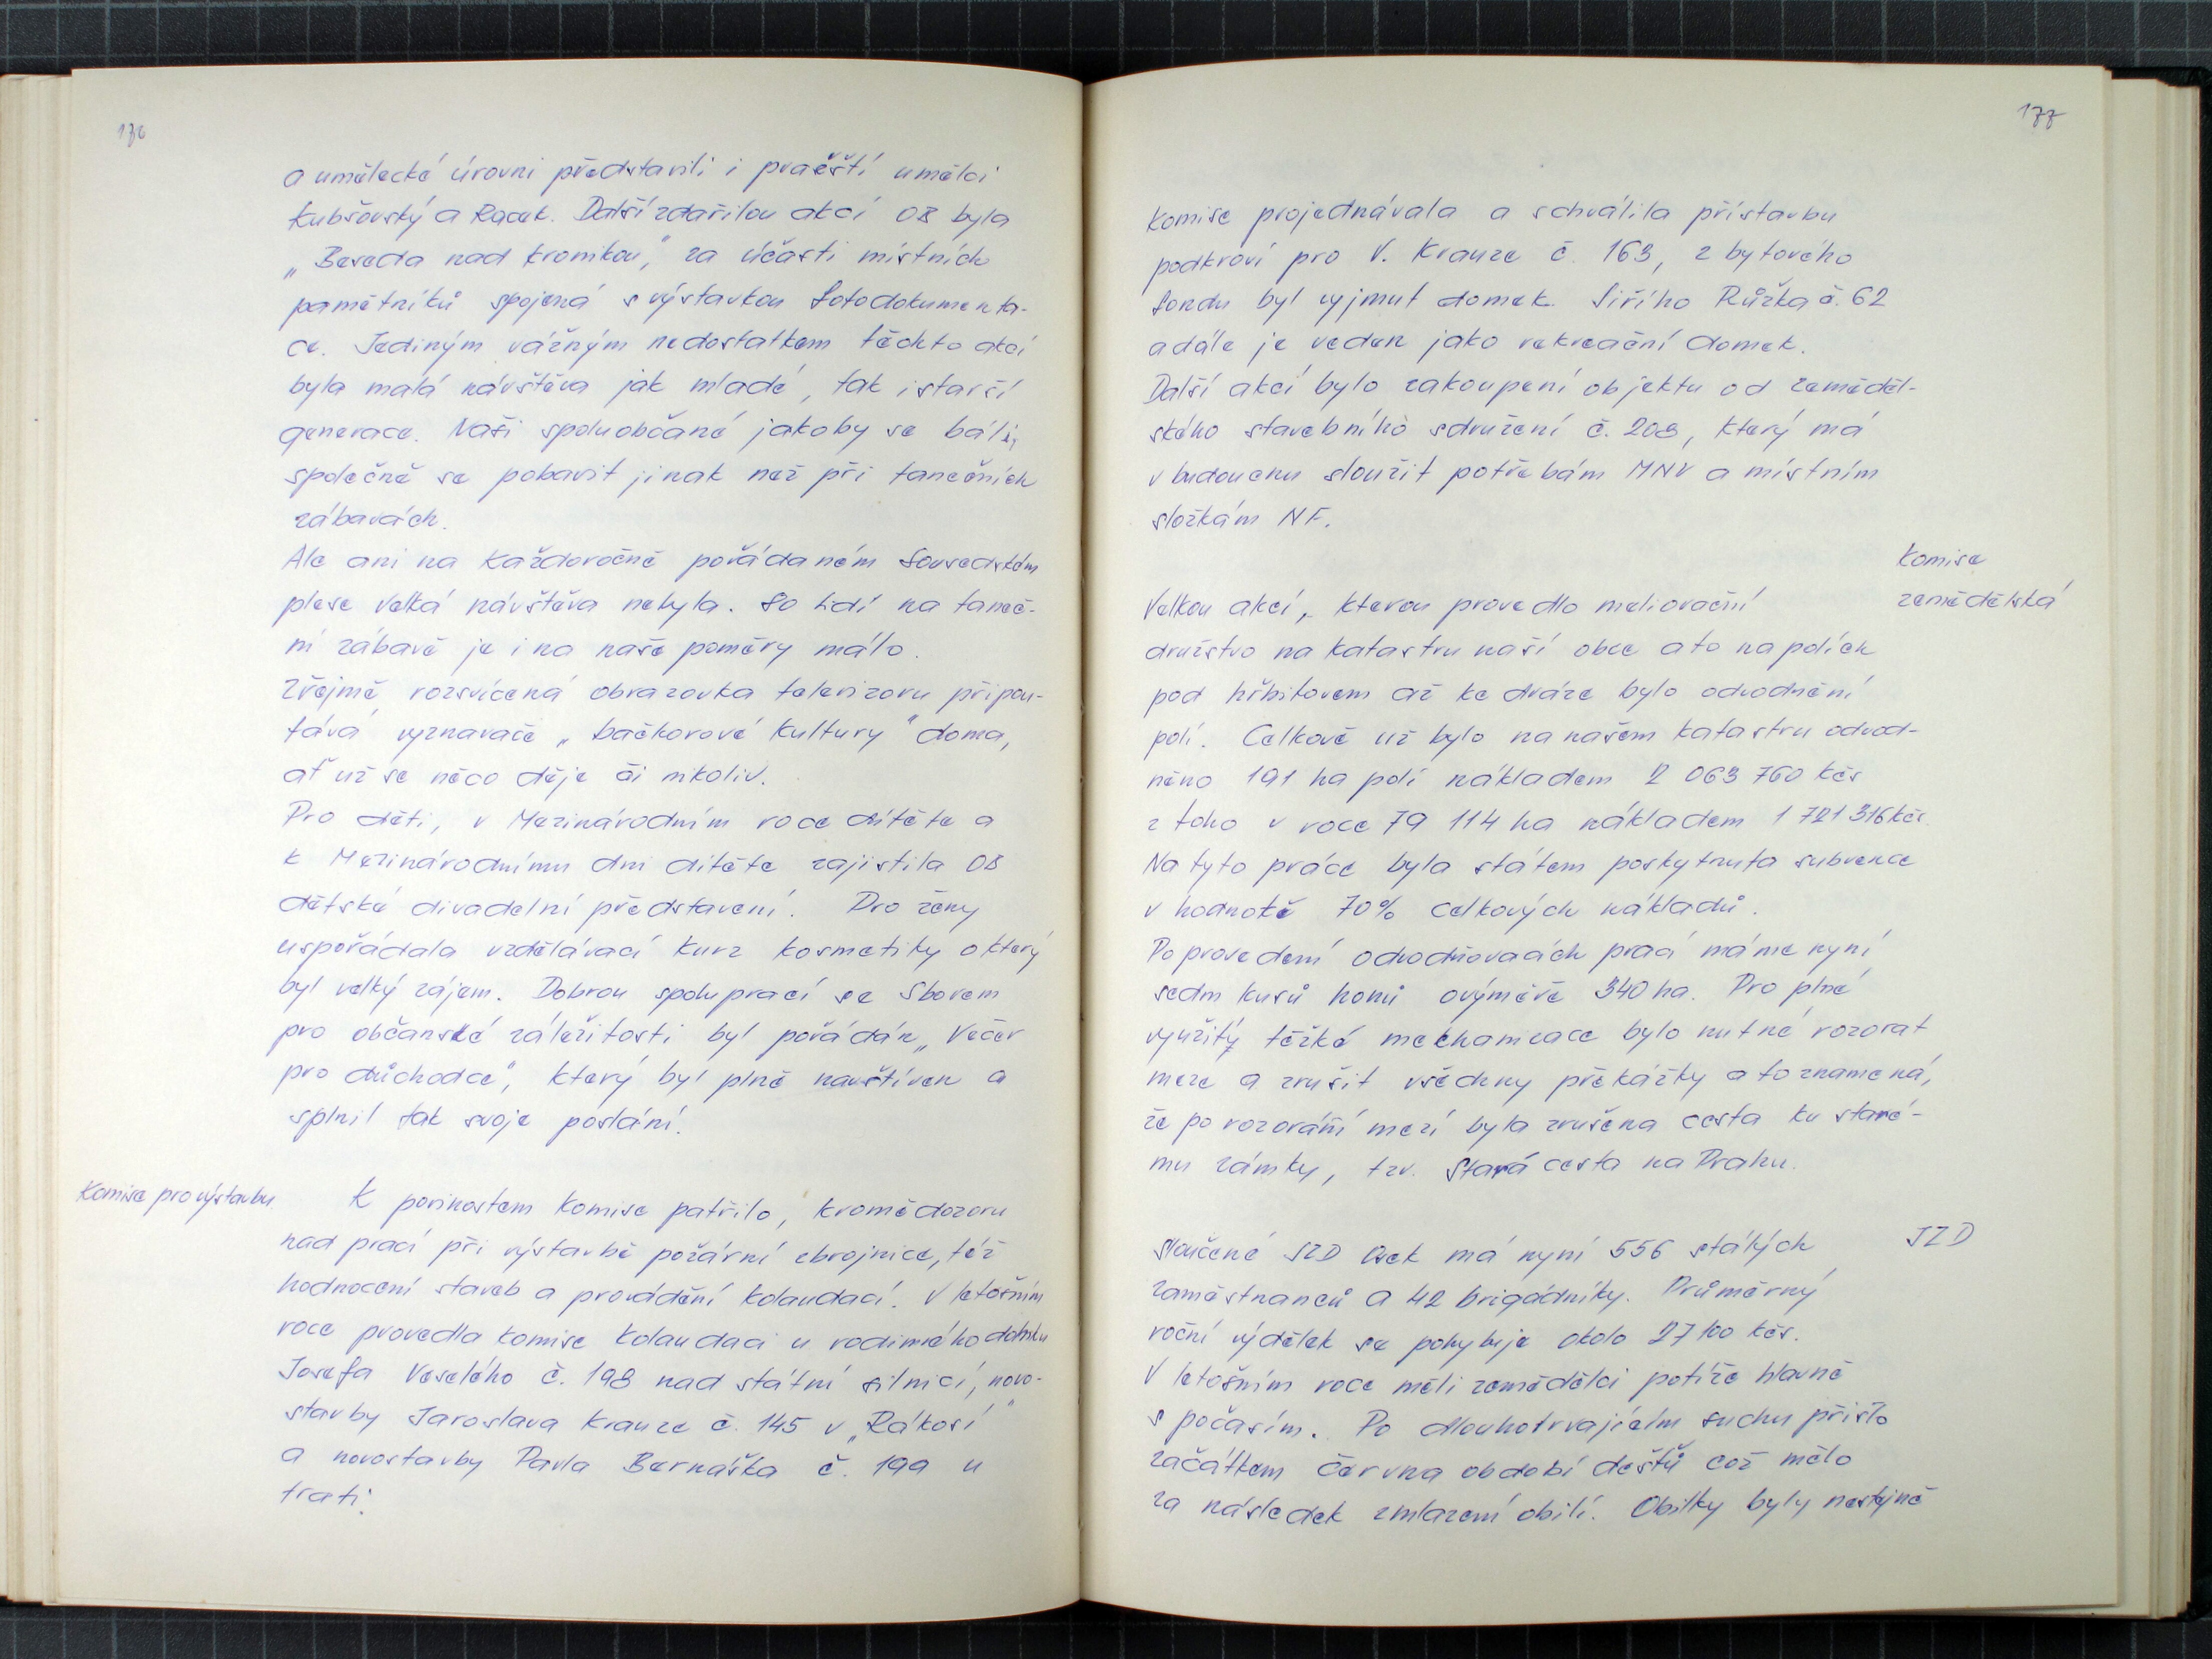 176
a umělecké úrovni představili i pražští umělci
Kubšovský a Racek. Další zdařilou akcí OB byla
„Beseda nad kronikou", za účasti místních
pamětníků spojená s výstavkou fotodokumenta-
ce. Jediným vážným nedostatkem těchto akcí
byla malá návštěva jak mladé, tak i starší
generace. Naši spoluobčané jakoby se báli,
společně se pobavit jinak než při tanečních
zábavách.
Ale ani na každoročně pořádaném Sousedském
plese velká návštěva nebyla. 80 lidí na taneč-
ní zábavě je i na naše poměry málo.
Zřejmě rozsvícená obrazovka televizoru připou-
tává vyznavače „bačkorové kultury" doma,
ať už se něco děje či nikoliv.
Pro děti, v Mezinárodním roce dítěte a
k Mezinárodnímu dni dítěte zajistila OB
dětské divadelní představení. Pro ženy
uspořádala vzdělávací kurz kosmetiky o který
byl velký zájem. Dobrou spoluprací se Sborem
pro občanské záležitosti byl pořádán „Večer
pro důchodce", který byl plně navštíven a
splnil tak svoje poslání.
Komise pro výstavbu.
K povinostem komise patřilo, kromě dozoru
nad prací při výstavbě požární zbrojnice, též
hodnocení staveb a provádění kolaudací. V letošním
roce provedla komise kolaudaci u rodinného domku
Josefa Veselého č. 198 nad státní silnicí, novo-
stavby Jaroslava Krauze č. 145 v „Rákosí"
a novostavby Pavla Bernáška č. 199 u
trati.
177
Komise projednávala a schválila přístavbu
podkroví pro V. Krauze č. 163, z bytového
fondu byl vyjmut domek Jiřího Růžka č. 62
a dále je veden jako rekreační domek.
Další akcí bylo zakoupení objektu od zeměděl-
ského stavebního sdružení č. 208, který má
v budoucnu sloužit potřebám MNV a místním
složkám NF.
Komise
zemědělská
Velkou akcí, kterou provedlo meliorační
družstvo na katastru naší obce a to na polích
pod hřbitovem až ke dráze bylo odvodnění
polí. Celkově už bylo na našem katastru odvod-
něno 191 ha polí nákladem 2 063 760 Kčs
z toho v roce 79 114 ha nákladem 1 721 316 Kčs.
Na tyto práce byla státem poskytnuta subvence
v hodnotě 70% celkových nákladů.
Po provedení odvodňovacích prací máme nyní
sedm kusů honů o výměře 340 ha. Pro plné
využitý těžké mechanizace bylo nutné rozorat
meze a zrušit všechny překážky a to znamená,
že po rozorání mezí byla zrušena cesta ku staré-
mu zámky, tzv. Stará cesta na Prahu.
JZD
Sloučené JZD Osek má nyní 556 stálých
zaměstnanců a 42 brigádníky. Průměrný
roční výdělek se pohybuje okolo 27 100 Kčs.
V letošním roce měli zemědělci potíže hlavně
s počasím. Po dlouhotrvajícím suchu přišlo
začátkem června období dešťů což mělo
za následek zmlazení obilí. Obilky byly nestejně